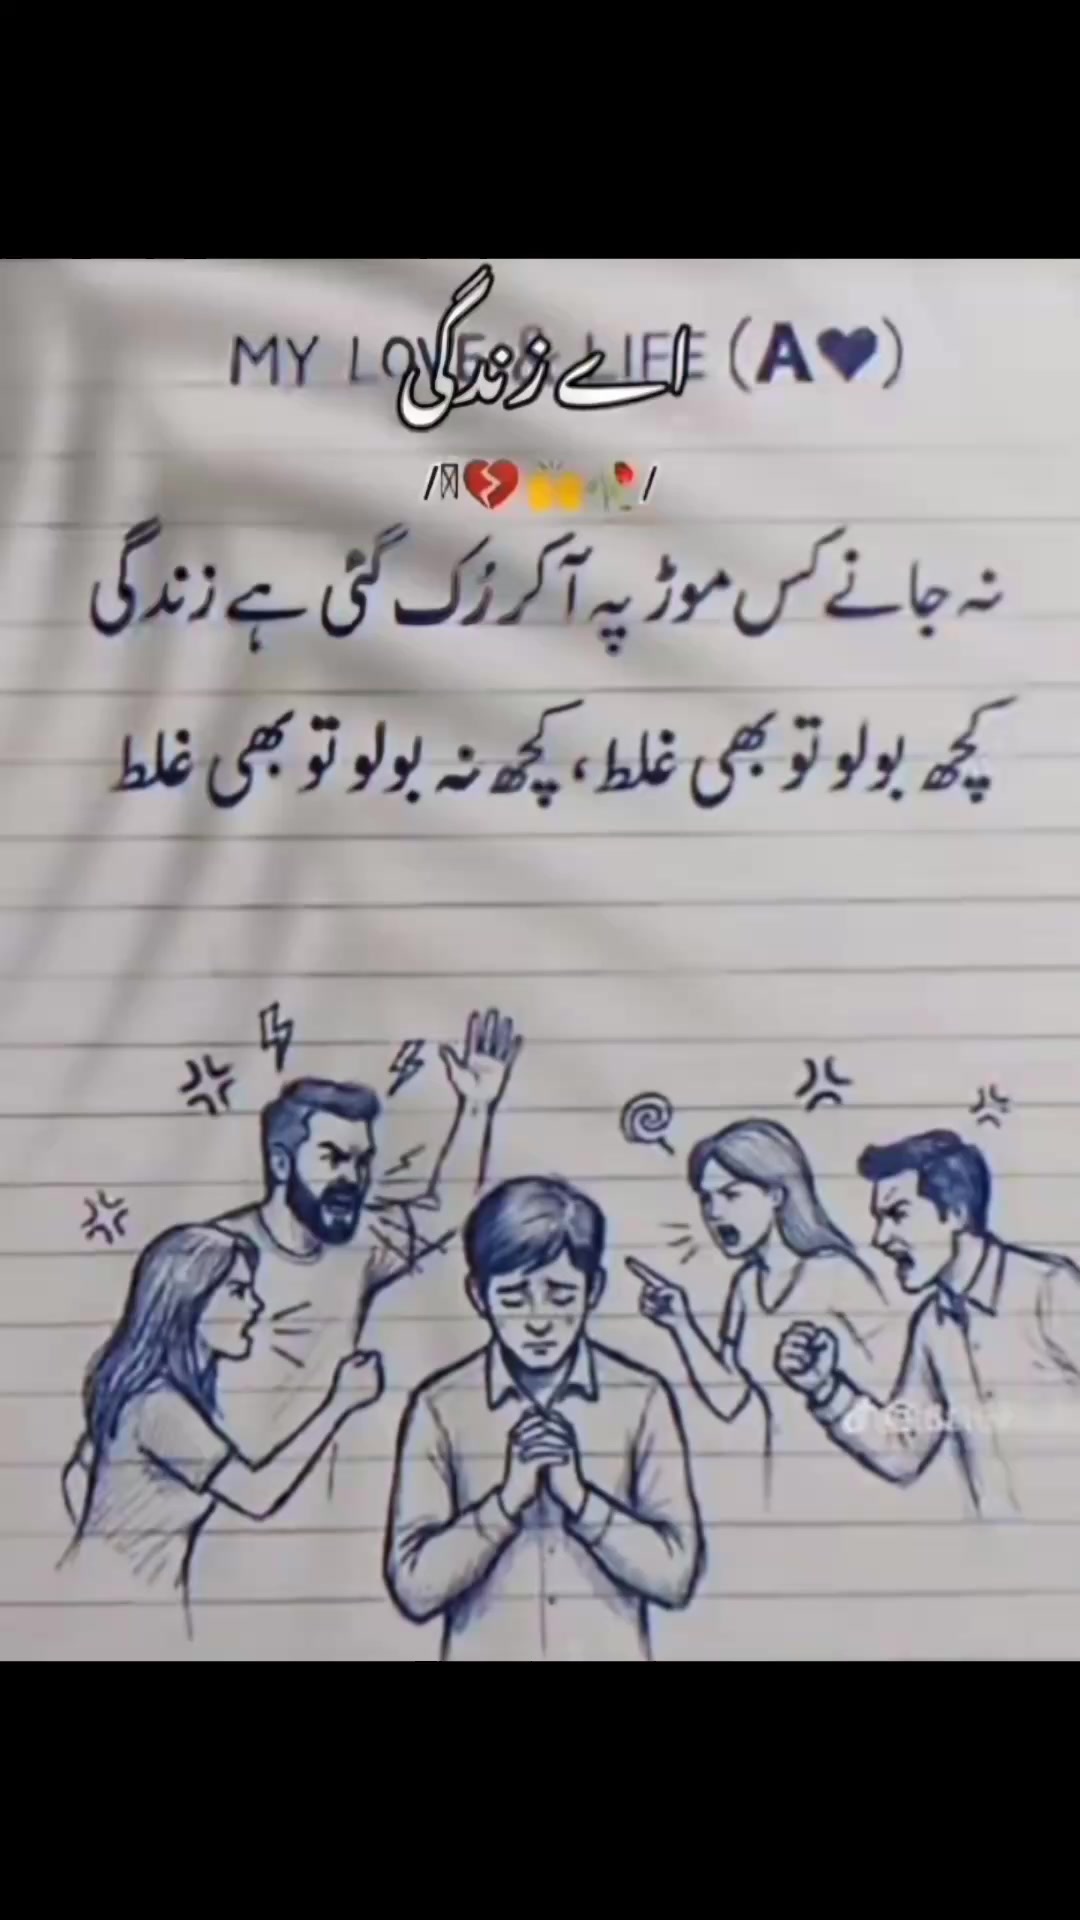 MY LOVE & LIFE (A♥)
اے زندگی
/💔🙌🥀/
نہ جانے کس موڑ پہ آ کر رُک گئی ہے زندگی
کچھ بولو تو بھی غلط، کچھ نہ بولو تو بھی غلط